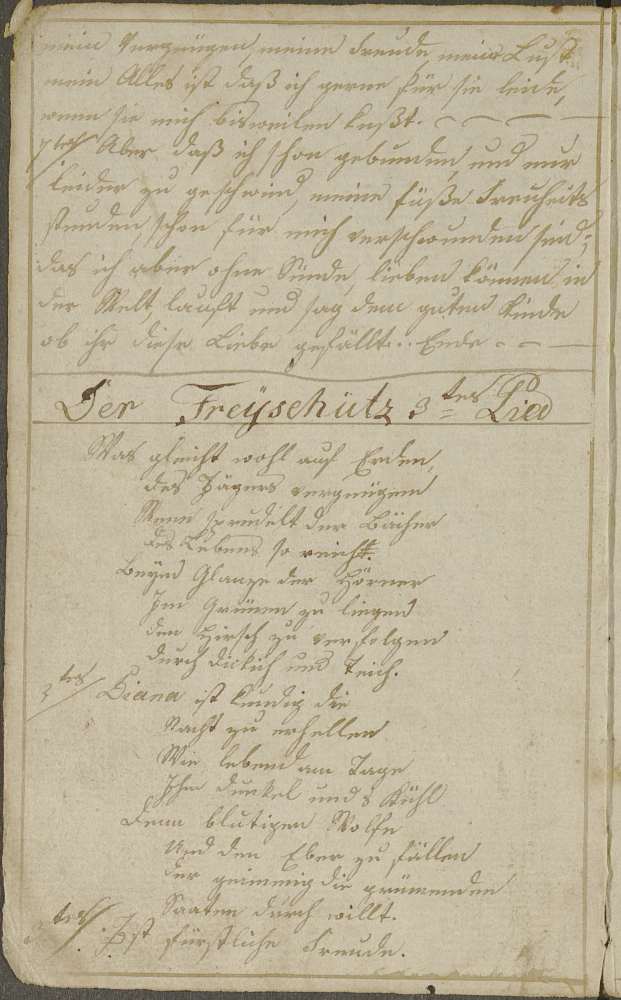 mein Vergnügen, meine Freude, meine Lust
mein Alles ist daß ich gerne für sie leide,
wenn sie mich bisweilen küßt.
7tes Aber daß ich schon gebunden, und nur
leider zu geschwind, meine süße Freyheits
stunden, schon für mich verschwunden sind;
das ich aber ohne Sünde, lieben können in
der Welt, lauft und sag dem guten Kinde
ob ihr diese Liebe gefällt.. Ende
Der Freyschütz 3tes Lied
Was gleicht wohl auf Erden,
des Jägers vergnügem
Wenn sprudelt der Bächer
des Lebens so reich
Beym Glanze der Hörner
Im Grünen zu liegen
den Hirsch zu verfolgen
durch Dickich und Teich.
2tes Diana ist kundig die
Nacht zu erhellen
Wie lebend am Tage
Ihm dunkel und kühl
Denn blutigen Wolfe
Und den Eber zu fällen
der grimmig die grünenden
Saaten durch willt.
3tes Ist fürstliche Freude.